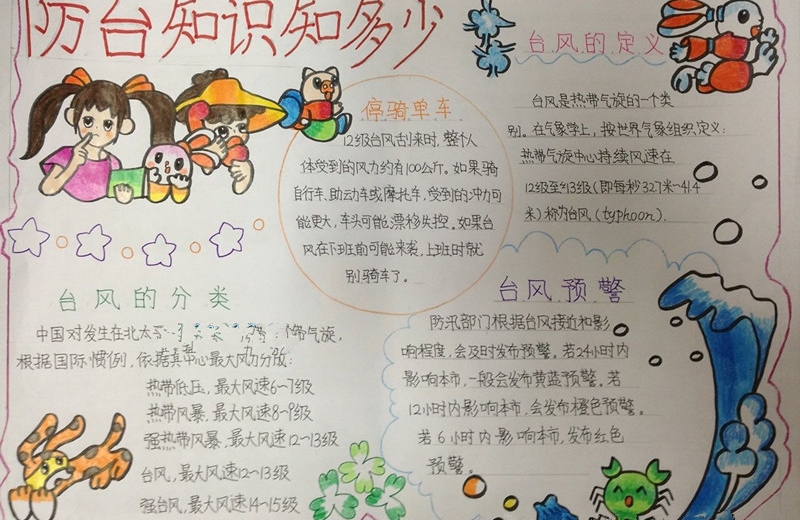 防台知识知多少
台风的定义
台风是热带气旋的一个类
别。在气象学上，按世界气象组织定义：
热带气旋中心持续风速在
12级至13级（即每秒32.7米-41.4
米）称为台风（typhoon）.
停骑单车
12级台风刮来时，整个人
体受到的风力约有100公斤。如果骑
自行车、助动车或摩托车，受到的冲力可
能更大，车头可能漂移失控。如果台
风在下班前可能来袭，上班时就
别骑车了。
台风的分类
中国对发生在北太
带气旋，
根据国际惯例，依据其中心最大风力分为：
热带低压，最大风速6-7级
热带风暴，最大风速8-9级
强热带风暴，最大风速12-13级
台风，最大风速12-13级
强台风，最大风速14-15级
台风预警
防汛部门根据台风接近和影
响程度，会及时发布预警。若24小时内
影响本市，一般会发布黄蓝预警。若
12小时内影响本市，会发布橙色预警。
若6小时内影响本市，发布红色
预警。